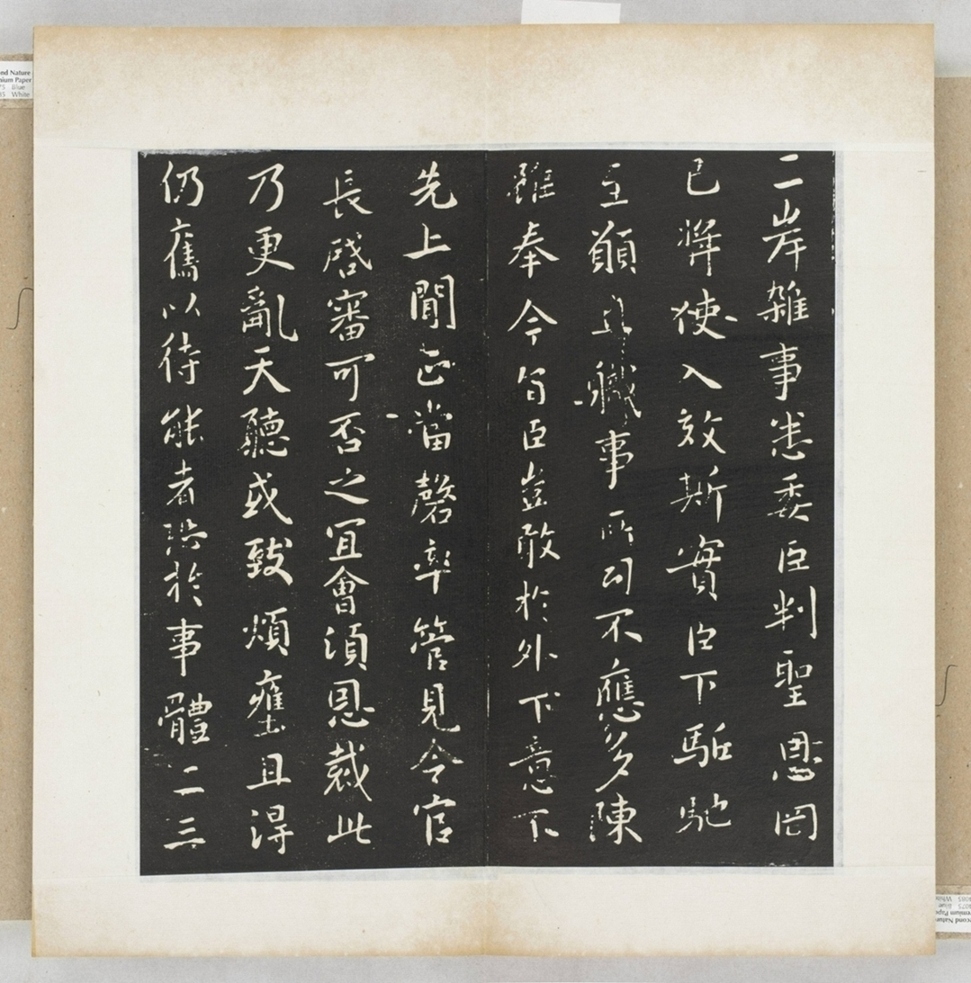 二岸雜事悉委臣判聖恩罔
已將使入效斯實臣下駈馳
至願且職事所司不應多陳
雖奉令旨臣豈敢於外下意下
先上聞正當罄率管見令官
長啓審可否之宜會須恩裁此
乃更亂天聽或致煩壅且得
仍舊以待能者恐於事體二三
Nature
Paper
Blue
White